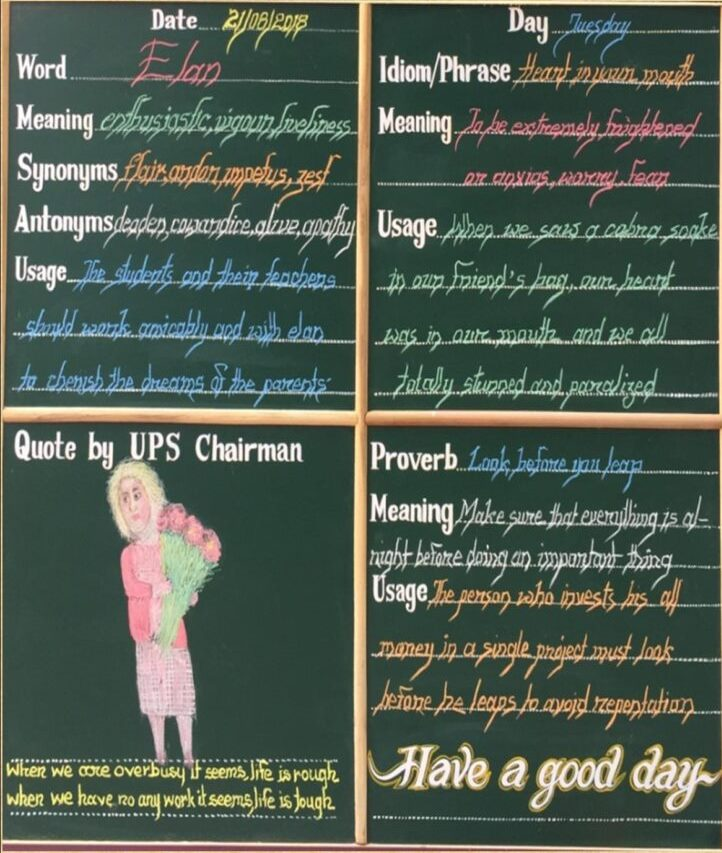 Date 21/08/2018
Word Elan
Meaning enthusiastic, vigour, liveliness
Synonyms flair, ardor, impetus, zest
Antonyms deaden, cowardice, alive, apathy
Usage The students and their teachers
should work amicably and with elan
to cherish the dreams of the parents
Day Tuesday
Idiom/Phrase Heart in your mouth
Meaning To be extremely frightened
or anxios, worry, fear
Usage When we saw a cobra snake
in our friend's bag, our heart
was in our mouth and we all
totally stunned and paralized
Quote by UPS Chairman
When we are overbusy it seems, life is rough
when we have no any work it seems, life is tough
Proverb Look before you leap
Meaning Make sure that everything is al-
right before doing an important thing
Usage The person who invests his all
money in a single project must look
before he leaps to avoid repentation
Have a good day